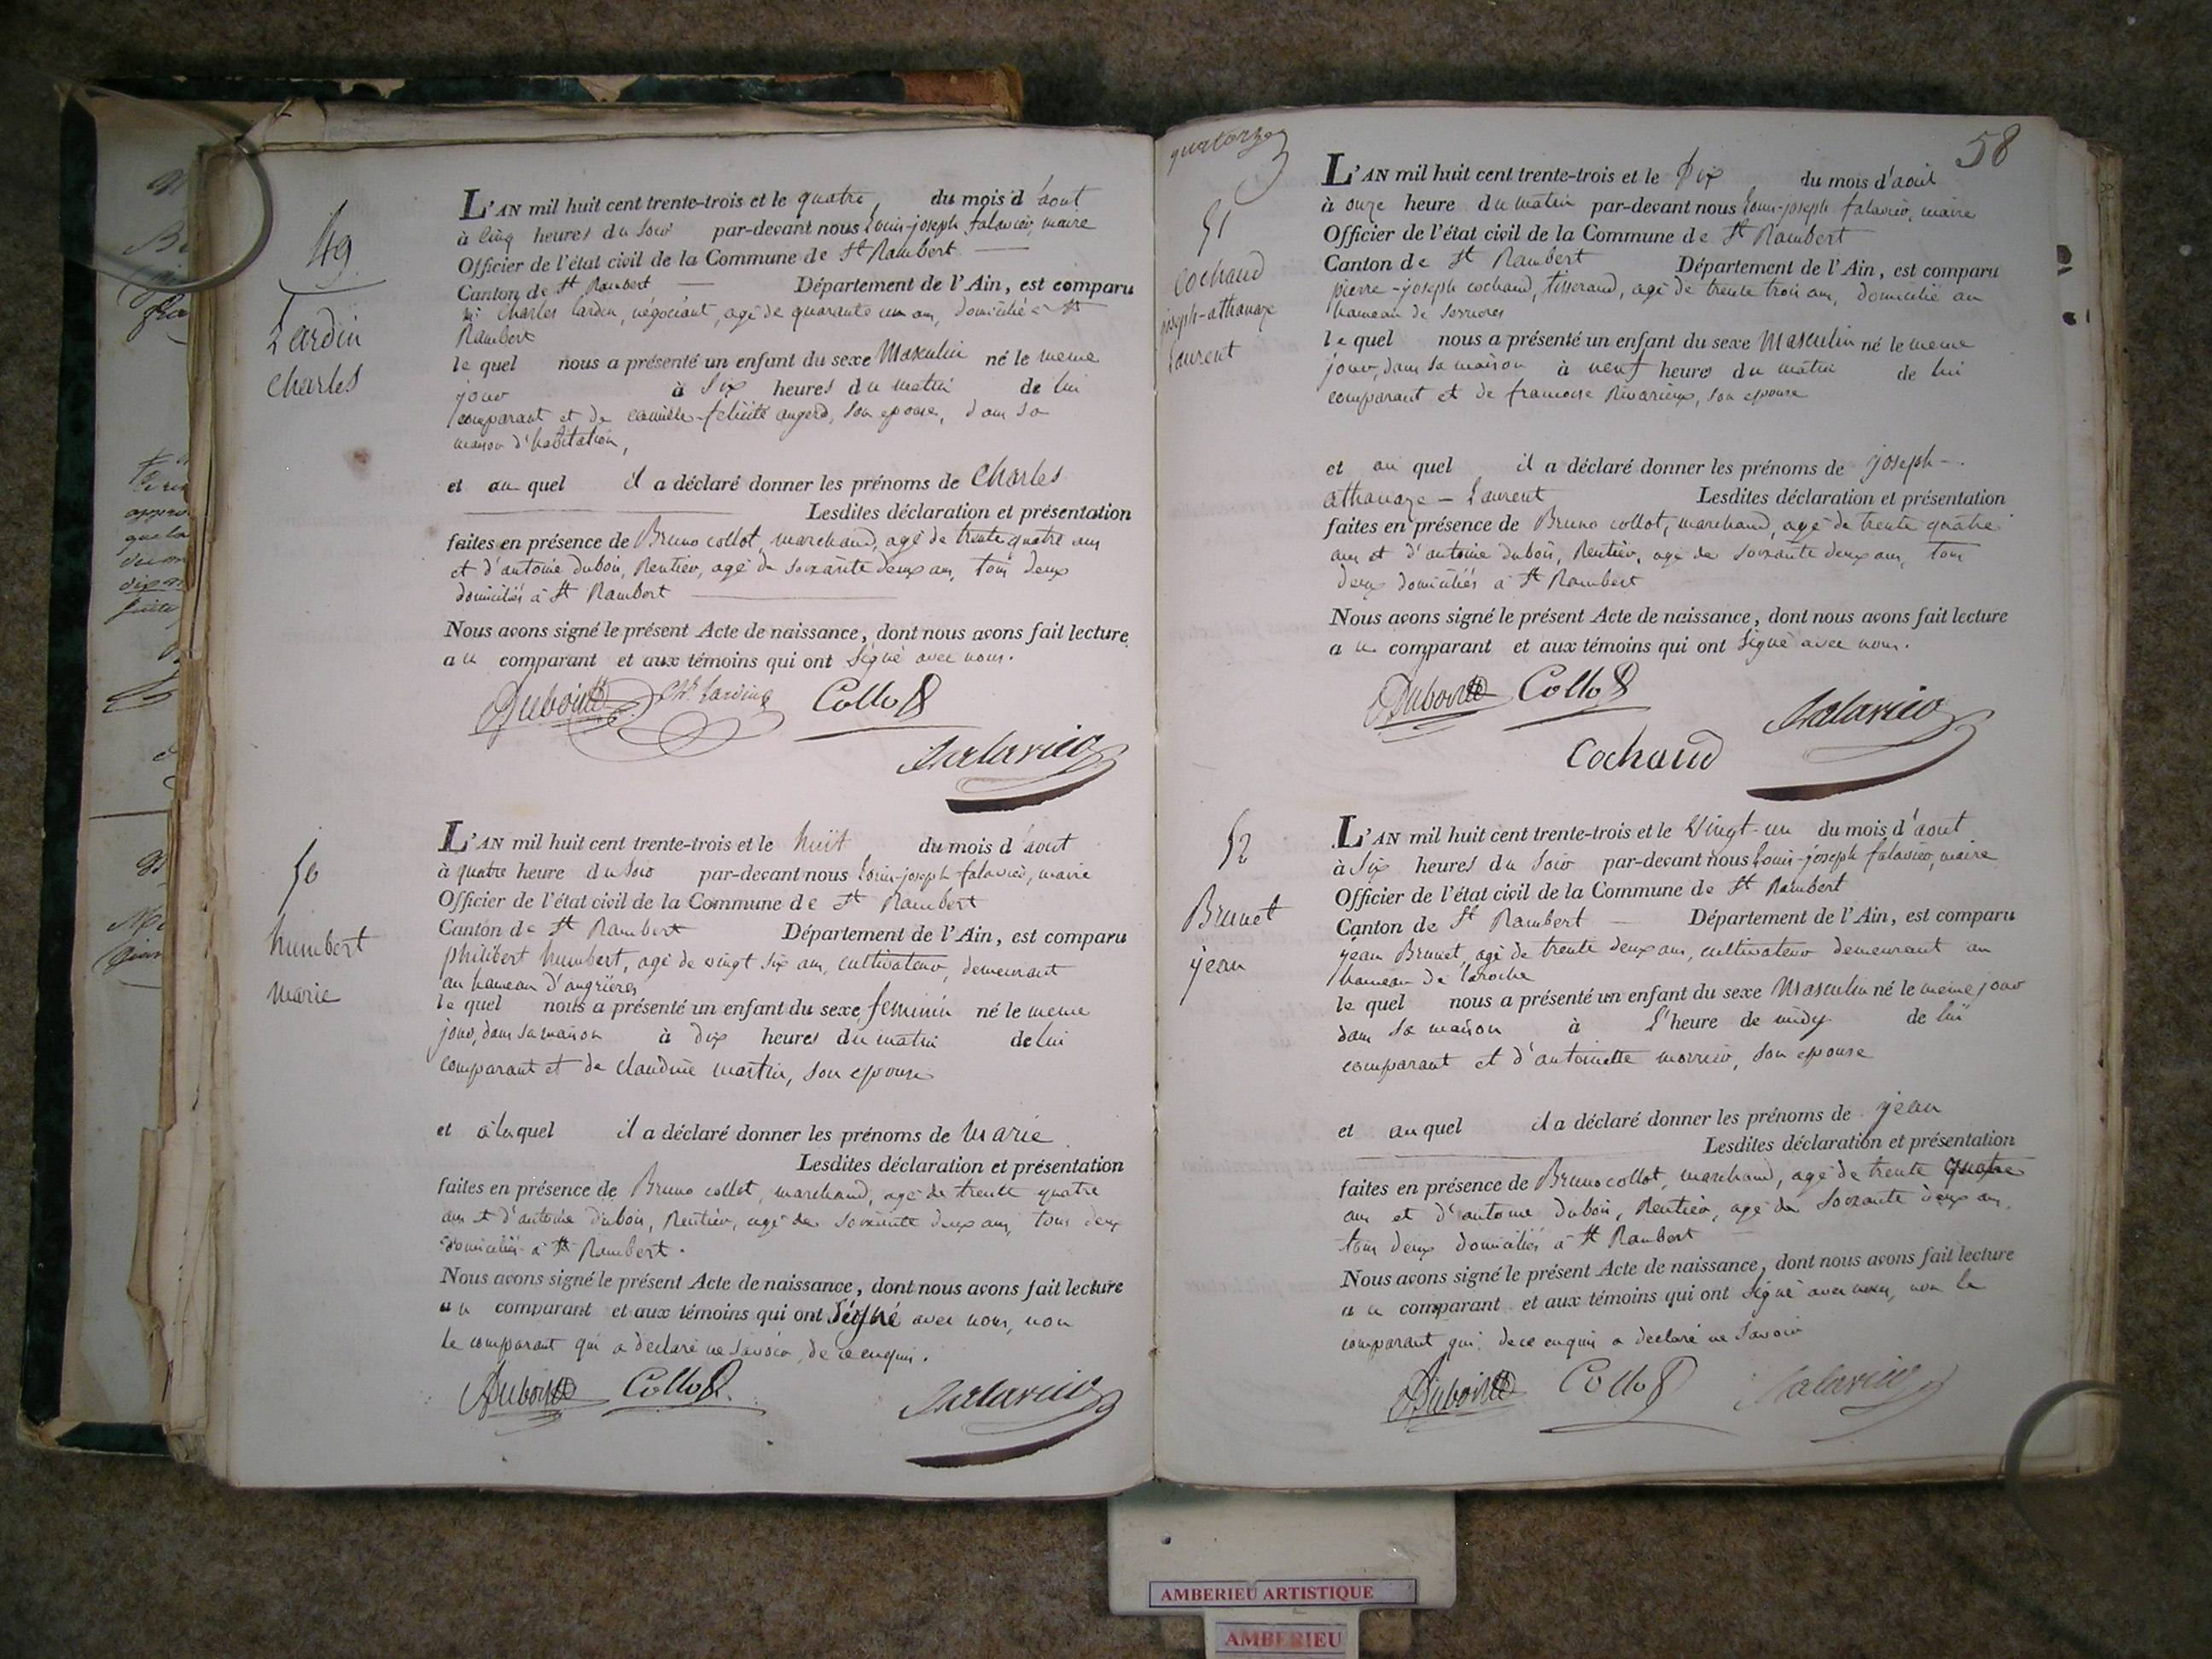 49
Lardin
Charles
L'AN mil huit cent trente-trois et le quatre du mois d'aout
à cinq heures du soir par-devant nous Louis-joseph falavier, maire
Officier de l'état civil de la Commune de St Rambert
Canton de St Rambert Département de l'Ain, est comparu
Charles Lardin, négociant, agé de quarante un ans, domicilié à St
Rambert
le quel nous a présenté un enfant du sexe Masculin né le meme
jour à Six heures du matin de lui
comparant et de camille-felicité augerd, son epouse, dans sa
maison d'habitation,
et au quel il a déclaré donner les prénoms de Charles
Lesdites déclaration et présentation
faites en présence de Bruno collot, marchand, agé de trente quatre ans
et d'antoine dubois, Rentier, agé de soixante deux ans, tous deux
domiciliés à St Rambert
Nous avons signé le présent Acte de naissance, dont nous avons fait lecture
au comparant et aux témoins qui ont Signé avec nous.
Dubois Ch. Lardin Collot
falavier
50
humbert
marie
L'AN mil huit cent trente-trois et le huit du mois d'aout
à quatre heure du soir par-devant nous Louis-joseph falavier, maire
Officier de l'état civil de la Commune de St Rambert
Canton de St Rambert Département de l'Ain, est comparu
philibert humbert, agé de vingt six ans, cultivateur, demeurant
au hameau d'angrières
le quel nous a présenté un enfant du sexe feminin né le meme
jour, dans sa maison à dix heures du matin de lui
comparant et de claudine martin, son epouse
et à la quel il a déclaré donner les prénoms de Marie
Lesdites déclaration et présentation
faites en présence de Bruno collot, marchand, agé de trente quatre
ans et d'antoine dubois, Rentier, agé de soixante deux ans, tous deux
domiciliés à St Rambert.
Nous avons signé le présent Acte de naissance, dont nous avons fait lecture
au comparant et aux témoins qui ont Signé avec nous, non
le comparant qui a declaré ne savoir, de ce enquis.
Dubois Collot
falavier
quatorze
58
51
Cochaud
joseph-athanaze
Laurent
L'AN mil huit cent trente-trois et le Dix du mois d'aout
à onze heure du matin par-devant nous Louis-joseph falavier, maire
Officier de l'état civil de la Commune de St Rambert
Canton de St Rambert Département de l'Ain, est comparu
pierre-joseph cochaud, tisserand, agé de trente trois ans, domicilié au
hameau de Serrieres
le quel nous a présenté un enfant du sexe Masculin né le meme
jour, dans sa maison à neuf heures du matin de lui
comparant et de francoise Rivarieux, son epouse
et au quel il a déclaré donner les prénoms de joseph-
athanaze-Laurent Lesdites déclaration et présentation
faites en présence de Bruno collot, marchand, agé de trente quatre
ans et d'antoine dubois, Rentier, agé de soixante deux ans, tous
deux domiciliés à St Rambert
Nous avons signé le présent Acte de naissance, dont nous avons fait lecture
au comparant et aux témoins qui ont Signé avec nous.
Dubois Collot
falavier
Cochaud
52
Brunet
jean
L'AN mil huit cent trente-trois et le Vingt-un du mois d'aout
à Six heures du soir par-devant nous Louis-joseph falavier, maire
Officier de l'état civil de la Commune de St Rambert
Canton de St Rambert Département de l'Ain, est comparu
jean Brunet, agé de trente deux ans, cultivateur demeurant au
hameau de Laroche
le quel nous a présenté un enfant du sexe Masculin né le meme jour
dans sa maison à l'heure de midy de lui
comparant et d'antoinette morrier, son epouse
et au quel il a déclaré donner les prénoms de jean
Lesdites déclaration et présentation
faites en présence de Bruno collot, marchand, agé de trente quatre
ans et d'antoine dubois, Rentier, agé de soixante deux ans,
tous deux domiciliés à St Rambert
Nous avons signé le présent Acte de naissance, dont nous avons fait lecture
au comparant et aux témoins qui ont Signé avec nous, non le
comparant qui de ce enquis a declaré ne savoir
Dubois Collot falavier
AMBERIEU ARTISTIQUE
AMBERIEU